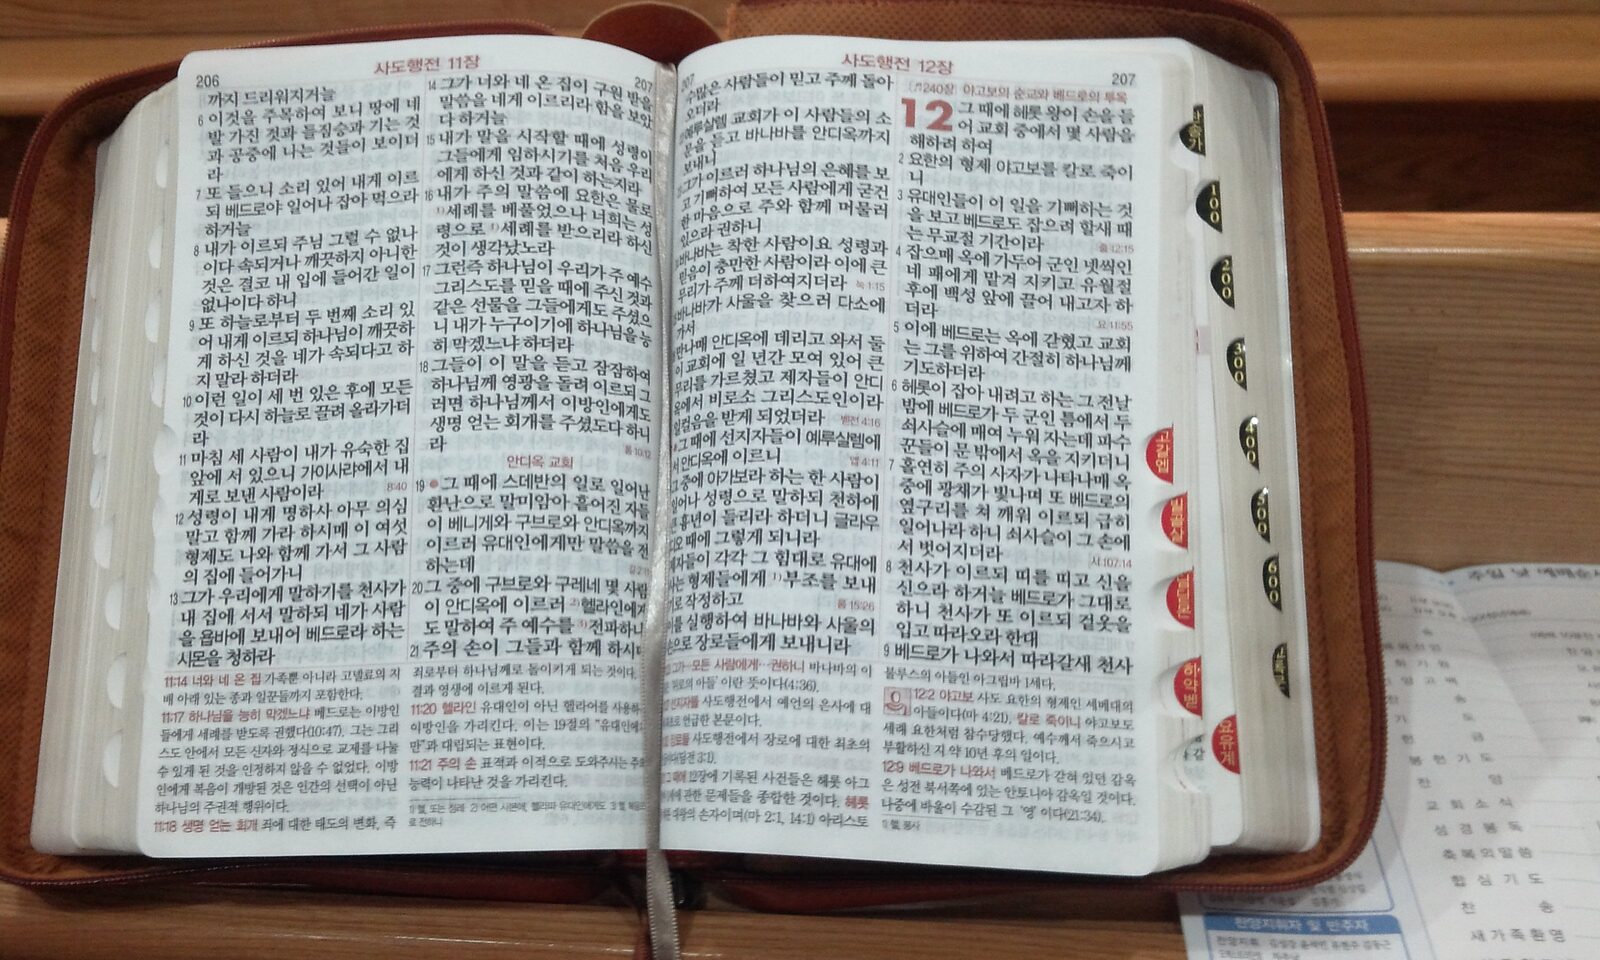 사도행전 11장
206
207
까지 드리워지거늘
6 이것을 주목하여 보니 땅에 네
발 가진 것과 들짐승과 기는 것
과 공중에 나는 것들이 보이더
라
7 또 들으니 소리 있어 내게 이르
되 베드로야 일어나 잡아 먹으라
하거늘
8 내가 이르되 주님 그럴 수 없나
이다 속되거나 깨끗하지 아니한
것은 결코 내 입에 들어간 일이
없나이다 하니
9 또 하늘로부터 두 번째 소리 있
어 내게 이르되 하나님이 깨끗하
게 하신 것을 네가 속되다고 하
지 말라 하더라
10 이런 일이 세 번 있은 후에 모든
것이 다시 하늘로 끌려 올라가더
라
11 마침 세 사람이 내가 유숙한 집
앞에 서 있으니 가이사랴에서 내
게로 보낸 사람이라
8:40
12 성령이 내게 명하사 아무 의심
말고 함께 가라 하시매 이 여섯
형제도 나와 함께 가서 그 사람
의 집에 들어가니
13 그가 우리에게 말하기를 천사가
내 집에 서서 말하되 네가 사람
을 욥바에 보내어 베드로라 하는
시몬을 청하라
11:14 너와 네 온 집 가족뿐 아니라 고넬료의 지
배 아래 있는 종과 일꾼들까지 포함한다.
11:17 하나님을 능히 막겠느냐 베드로는 이방인
들에게 세례를 받도록 권했다(10:47). 그는 그리
스도 안에서 모든 신자와 정식으로 교제를 나눌
수 있게 된 것을 인정하지 않을 수 없었다. 이방
인에게 복음이 개방된 것은 인간의 선택이 아닌
하나님의 주권적 행위이다.
11:18 생명 얻는 회개 죄에 대한 태도의 변화, 즉
14 그가 너와 네 온 집이 구원 받을
말씀을 네게 이르리라 함을 보았
다 하거늘
15 내가 말을 시작할 때에 성령이
그들에게 임하시기를 처음 우리
에게 하신 것과 같이 하는지라
16 내가 주의 말씀에 요한은 물로
1)세례를 베풀었으나 너희는 성
령으로 1)세례를 받으리라 하신
것이 생각났노라
17 그런즉 하나님이 우리가 주 예수
그리스도를 믿을 때에 주신 것과
같은 선물을 그들에게도 주셨으
니 내가 누구이기에 하나님을 능
히 막겠느냐 하더라
18 그들이 이 말을 듣고 잠잠하여
하나님께 영광을 돌려 이르되 그
러면 하나님께서 이방인에게도
생명 얻는 회개를 주셨도다 하니
라
롬 10:12
안디옥 교회
19 그 때에 스데반의 일로 일어난
환난으로 말미암아 흩어진 자들
이 베니게와 구브로와 안디옥까지
이르러 유대인에게만 말씀을 전
하는데
20 그 중에 구브로와 구레네 몇 사람
이 안디옥에 이르러 2)헬라인에게
도 말하여 주 예수를 3)전파하니
21 주의 손이 그들과 함께 하시매
죄로부터 하나님께로 돌이키게 되는 것이다.
결과 영생에 이르게 된다.
11:20 헬라인 유대인이 아닌 헬라어를 사용하
이방인을 가리킨다. 이는 19절의 "유대인에게
만"과 대립되는 표현이다.
11:21 주의 손 표적과 이적으로 도와주시는
능력이 나타난 것을 가리킨다.
사도행전 12장
207
207
수많은 사람들이 믿고 주께 돌아
오더라
예루살렘 교회가 이 사람들의 소
문을 듣고 바나바를 안디옥까지
보내니
그가 이르러 하나님의 은혜를 보
고 기뻐하여 모든 사람에게 굳건
한 마음으로 주와 함께 머물러
있으라 권하니
바나바는 착한 사람이요 성령과
믿음이 충만한 사람이라 이에 큰
무리가 주께 더하여지더라 눅 1:15
바나바가 사울을 찾으러 다소에
가서
만나매 안디옥에 데리고 와서 둘
이 교회에 일 년간 모여 있어 큰
무리를 가르쳤고 제자들이 안디
옥에서 비로소 그리스도인이라
일컬음을 받게 되었더라 벧전 4:16
그 때에 선지자들이 예루살렘에
서 안디옥에 이르니 엡 4:11
그 중에 아가보라 하는 한 사람이
일어나 성령으로 말하되 천하에
큰 흉년이 들리라 하더니 글라우
디오 때에 그렇게 되니라
제자들이 각각 그 힘대로 유대에
사는 형제들에게 1)부조를 보내
기로 작정하고 롬 15:26
이를 실행하여 바나바와 사울의
손으로 장로들에게 보내니라
그가…모든 사람에게…권하니 바나바의 이
'권위의 아들'이란 뜻이다(4:36).
선지자를 사도행전에서 예언의 은사에 대
최초로 언급한 본문이다.
장로들 사도행전에서 장로에 대한 최초의
(딤전 3:1).
그 때에 12장에 기록된 사건들은 헤롯 아그
에 관한 문제들을 종합한 것이다. 헤롯
대왕의 손자이며(마 2:1, 14:1) 아리스토
(♬240장) 야고보의 순교와 베드로의 투옥
12 그 때에 헤롯 왕이 손을 들
어 교회 중에서 몇 사람을
해하려 하여
2 요한의 형제 야고보를 칼로 죽이
니
3 유대인들이 이 일을 기뻐하는 것
을 보고 베드로도 잡으려 할새 때
는 무교절 기간이라 출 12:15
4 잡으매 옥에 가두어 군인 넷씩인
네 패에게 맡겨 지키고 유월절
후에 백성 앞에 끌어 내고자 하
더라
요 11:55
5 이에 베드로는 옥에 갇혔고 교회
는 그를 위하여 간절히 하나님께
기도하더라
6 헤롯이 잡아 내려고 하는 그 전날
밤에 베드로가 두 군인 틈에서 두
쇠사슬에 매여 누워 자는데 파수
꾼들이 문 밖에서 옥을 지키더니
7 홀연히 주의 사자가 나타나매 옥
중에 광채가 빛나며 또 베드로의
옆구리를 쳐 깨워 이르되 급히
일어나라 하니 쇠사슬이 그 손에
서 벗어지더라 시 107:14
8 천사가 이르되 띠를 띠고 신을
신으라 하거늘 베드로가 그대로
하니 천사가 또 이르되 겉옷을
입고 따라오라 한대
9 베드로가 나와서 따라갈새 천사
불루스의 아들인 아그립바 1세다.
12:2 야고보 사도 요한의 형제인 세베대의
아들이다(마 4:21). 칼로 죽이니 야고보도
세례 요한처럼 참수당했다. 예수께서 죽으시고
부활하신 지 약 10년 후의 일이다.
12:9 베드로가 나와서 베드로가 갇혀 있던 감옥
은 성전 북서쪽에 있는 안토니아 감옥일 것이다.
나중에 바울이 수감된 그 '영'이다(21:34).
1) 헬, 봉사
찬송가
100
200
300
400
500
600
교독문
고갈엡
빌골살
딤딛몬
히약벧
요유계
주일 낮 예배순서
교회소식
성경봉독
축복의말씀
합심기도
찬 송
새가족환영
찬양지휘자 및 반주자
찬양지휘